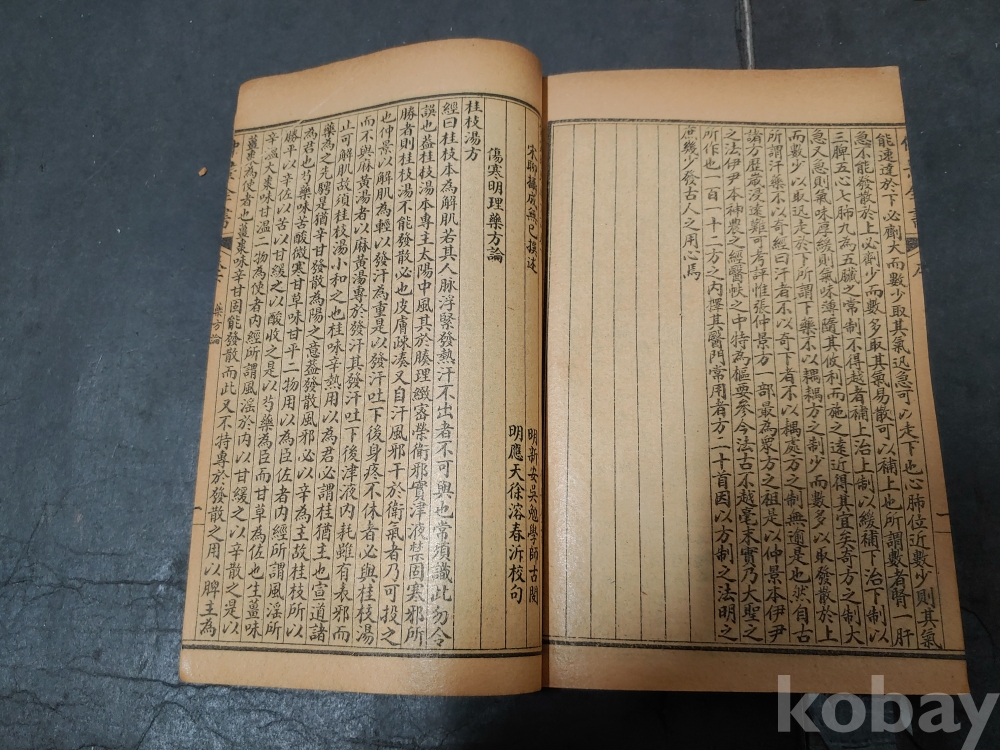 能速達於下必劑大而數少取其氣迅急可以走下也心肺位近數少則其氣
急不能發散於上必劑少而數多取其氣易散可以補上也所謂數者腎一肝
三脾五心七肺九為五臟之常制不得越者補上治上制以緩補下治下制以
急又急則氣味厚緩則氣味薄隨其攸利而施之遠近得其宜矣奇方之制大
而數少以取迅走於下所謂下藥不以耦耦方之制少而數多以取發散於上
所謂汗藥不以奇經曰汗者不以奇下者不以耦處方之制無逾是也然自古
諸方歷歲浸遠難可考評惟張仲景方一部最為眾方之祖是以仲景本伊尹
之法伊尹本神農之經醫帙之中特為樞要參今法古不越毫末實乃大聖之
所作也一百一十二方之內擇其醫門常用者方二十首因以方制之法明之
庶幾少發古人之用心焉
宋聊攝成無己撰述
明新安吳勉學師古閱
傷寒明理藥方論
明應天徐溶春沂校句
桂枝湯方
經曰桂枝本為解肌若其人脉浮緊發熱汗不出者不可與也常須識此勿令
誤也葢桂枝湯本專主太陽中風其於腠理緻密榮衛邪實津液禁固寒邪所
勝者則桂枝湯不能發散必也皮膚疎湊又自汗風邪干於衛氣者乃可投之
也仲景以解肌為輕以發汗為重是以發汗吐下後身疼不休者必與桂枝湯
而不與麻黃湯者以麻黃湯專於發汗其發汗吐下後津液內耗雖有表邪而
止可解肌故須桂枝湯小和之也桂味辛熱用以為君必謂桂猶主也宣道諸
藥為之先聘是猶辛甘發散為陽之意葢發散風邪必以辛為主故桂枝所以
為君也芍藥味苦酸微寒甘草味甘平二物用以為臣佐者內經所謂風淫所
勝平以辛佐以苦以甘緩之以酸收之是以芍藥為臣而甘草為佐也生薑味
辛溫大棗味甘溫二物為使者內經所謂風淫於內以甘緩之以辛散之是以
薑棗為使者也薑棗味辛甘固能發散而此又不特專於發散之用以脾主為
藥方論
一
kobay